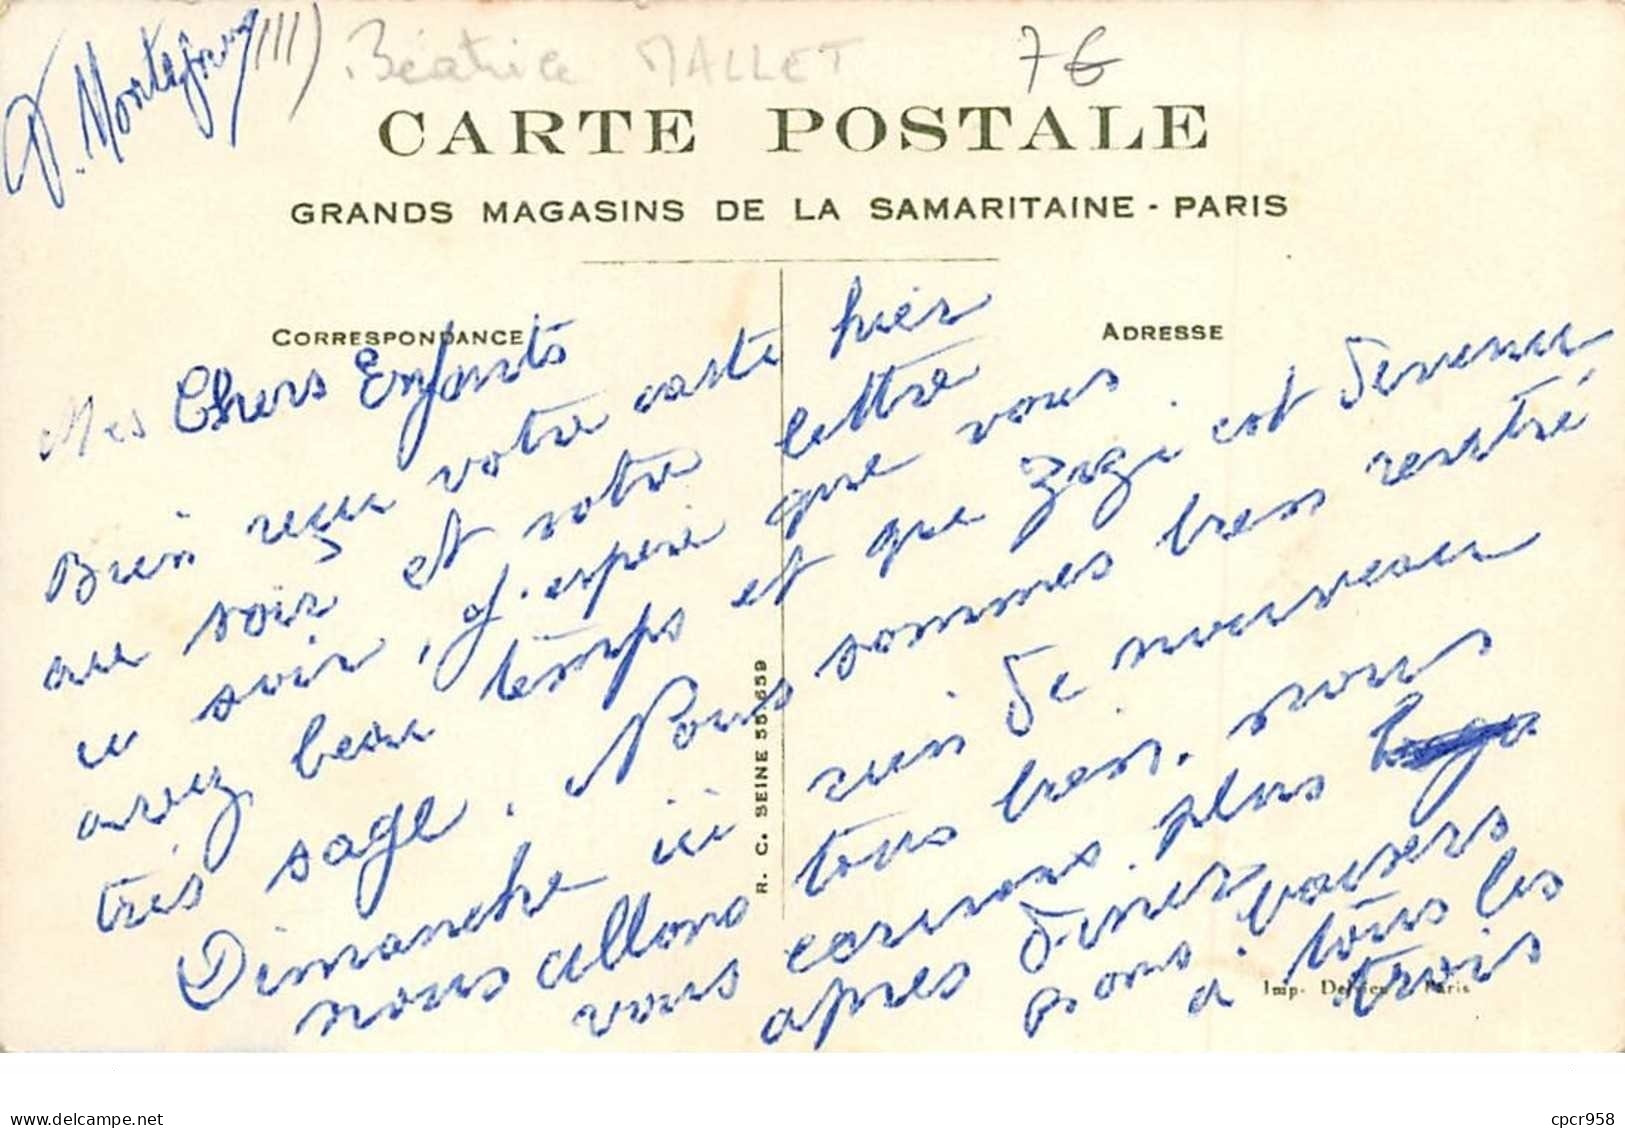 Béatrice MALLET
7€
CARTE POSTALE
GRANDS MAGASINS DE LA SAMARITAINE - PARIS
CORRESPONDANCE
ADRESSE
Mes Chers Enfants
Bien reçu votre carte hier
au soir et votre lettre
ce soir, J'espère que vous
avez beau temps et que Zizi est devenu
très sage. Nous sommes bien rentré
Dimanche ici rien de nouveau
nous allons tous bien. nous
vous ecrirons plus
apres diner
bons baisers
a tous les
trois
R. C. SEINE 55 659
Imp. Paris
delcampe.net
cpcr958